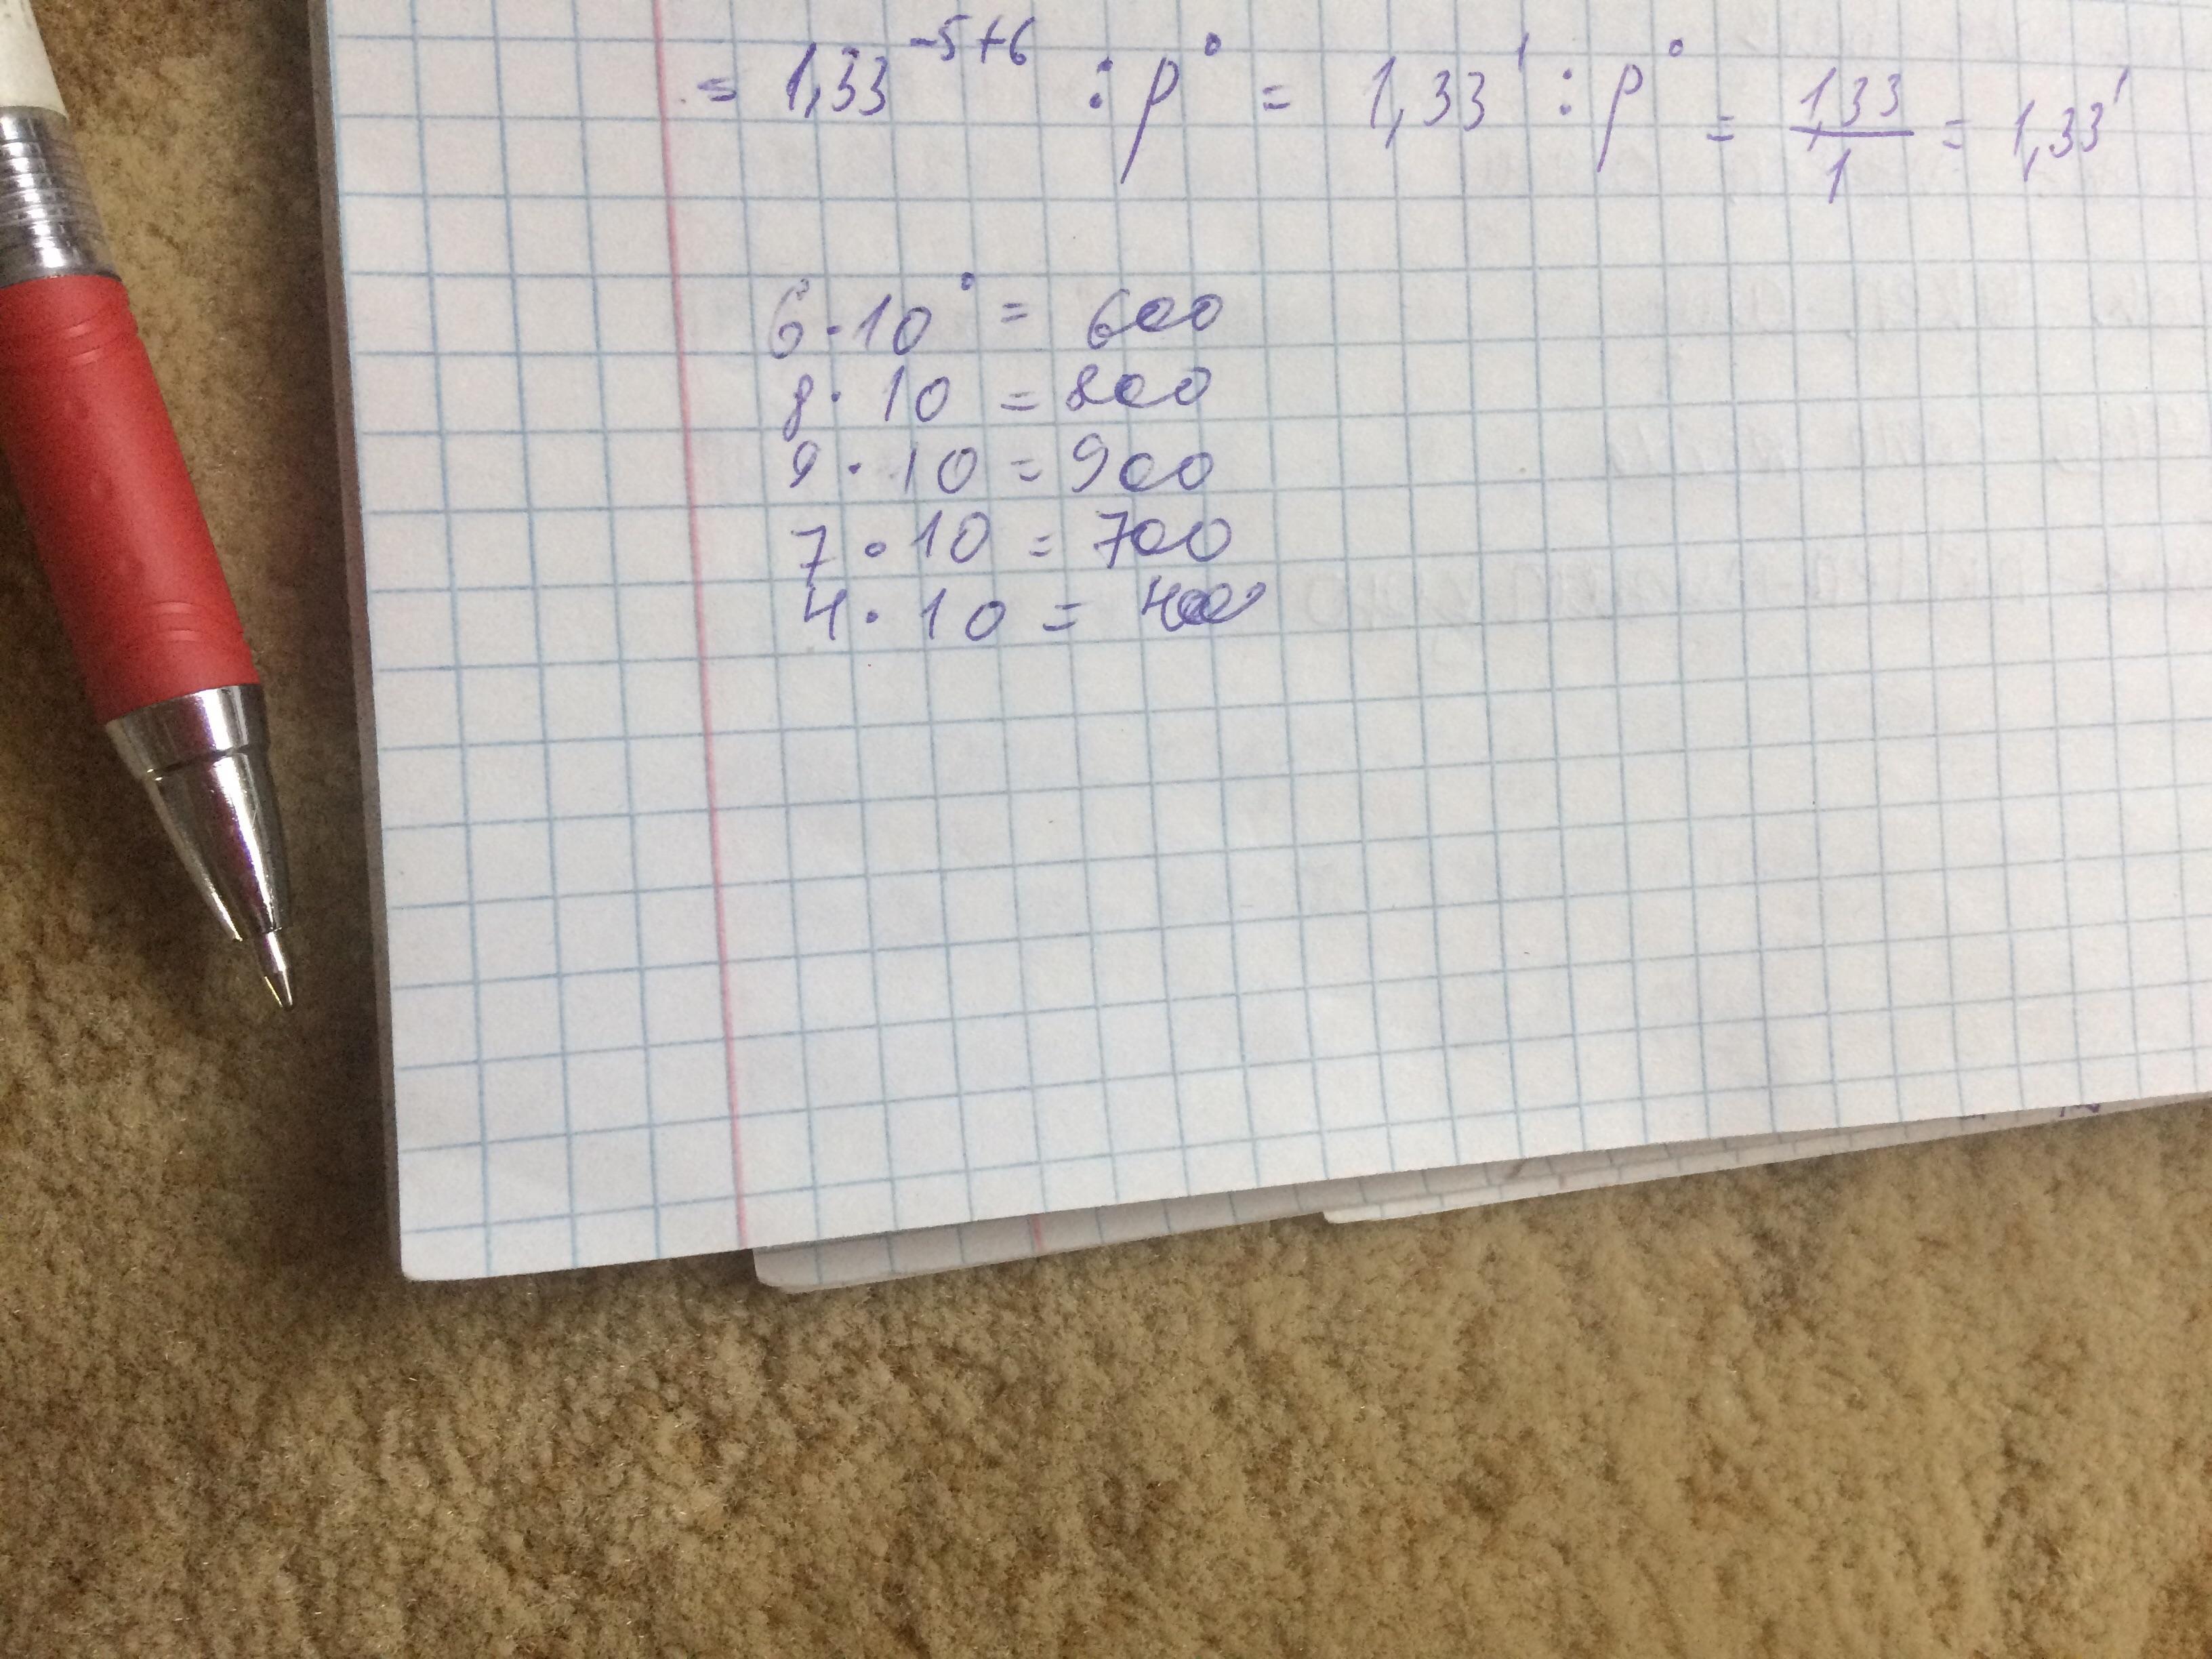 = 1,33⁻⁵⁺⁶ : p⁰ = 1,33¹ : p⁰ = 1,33/1 = 1,33¹
6·10⁰ = 600
8·10 = 800
9·10 = 900
7·10 = 700
4·10 = 400